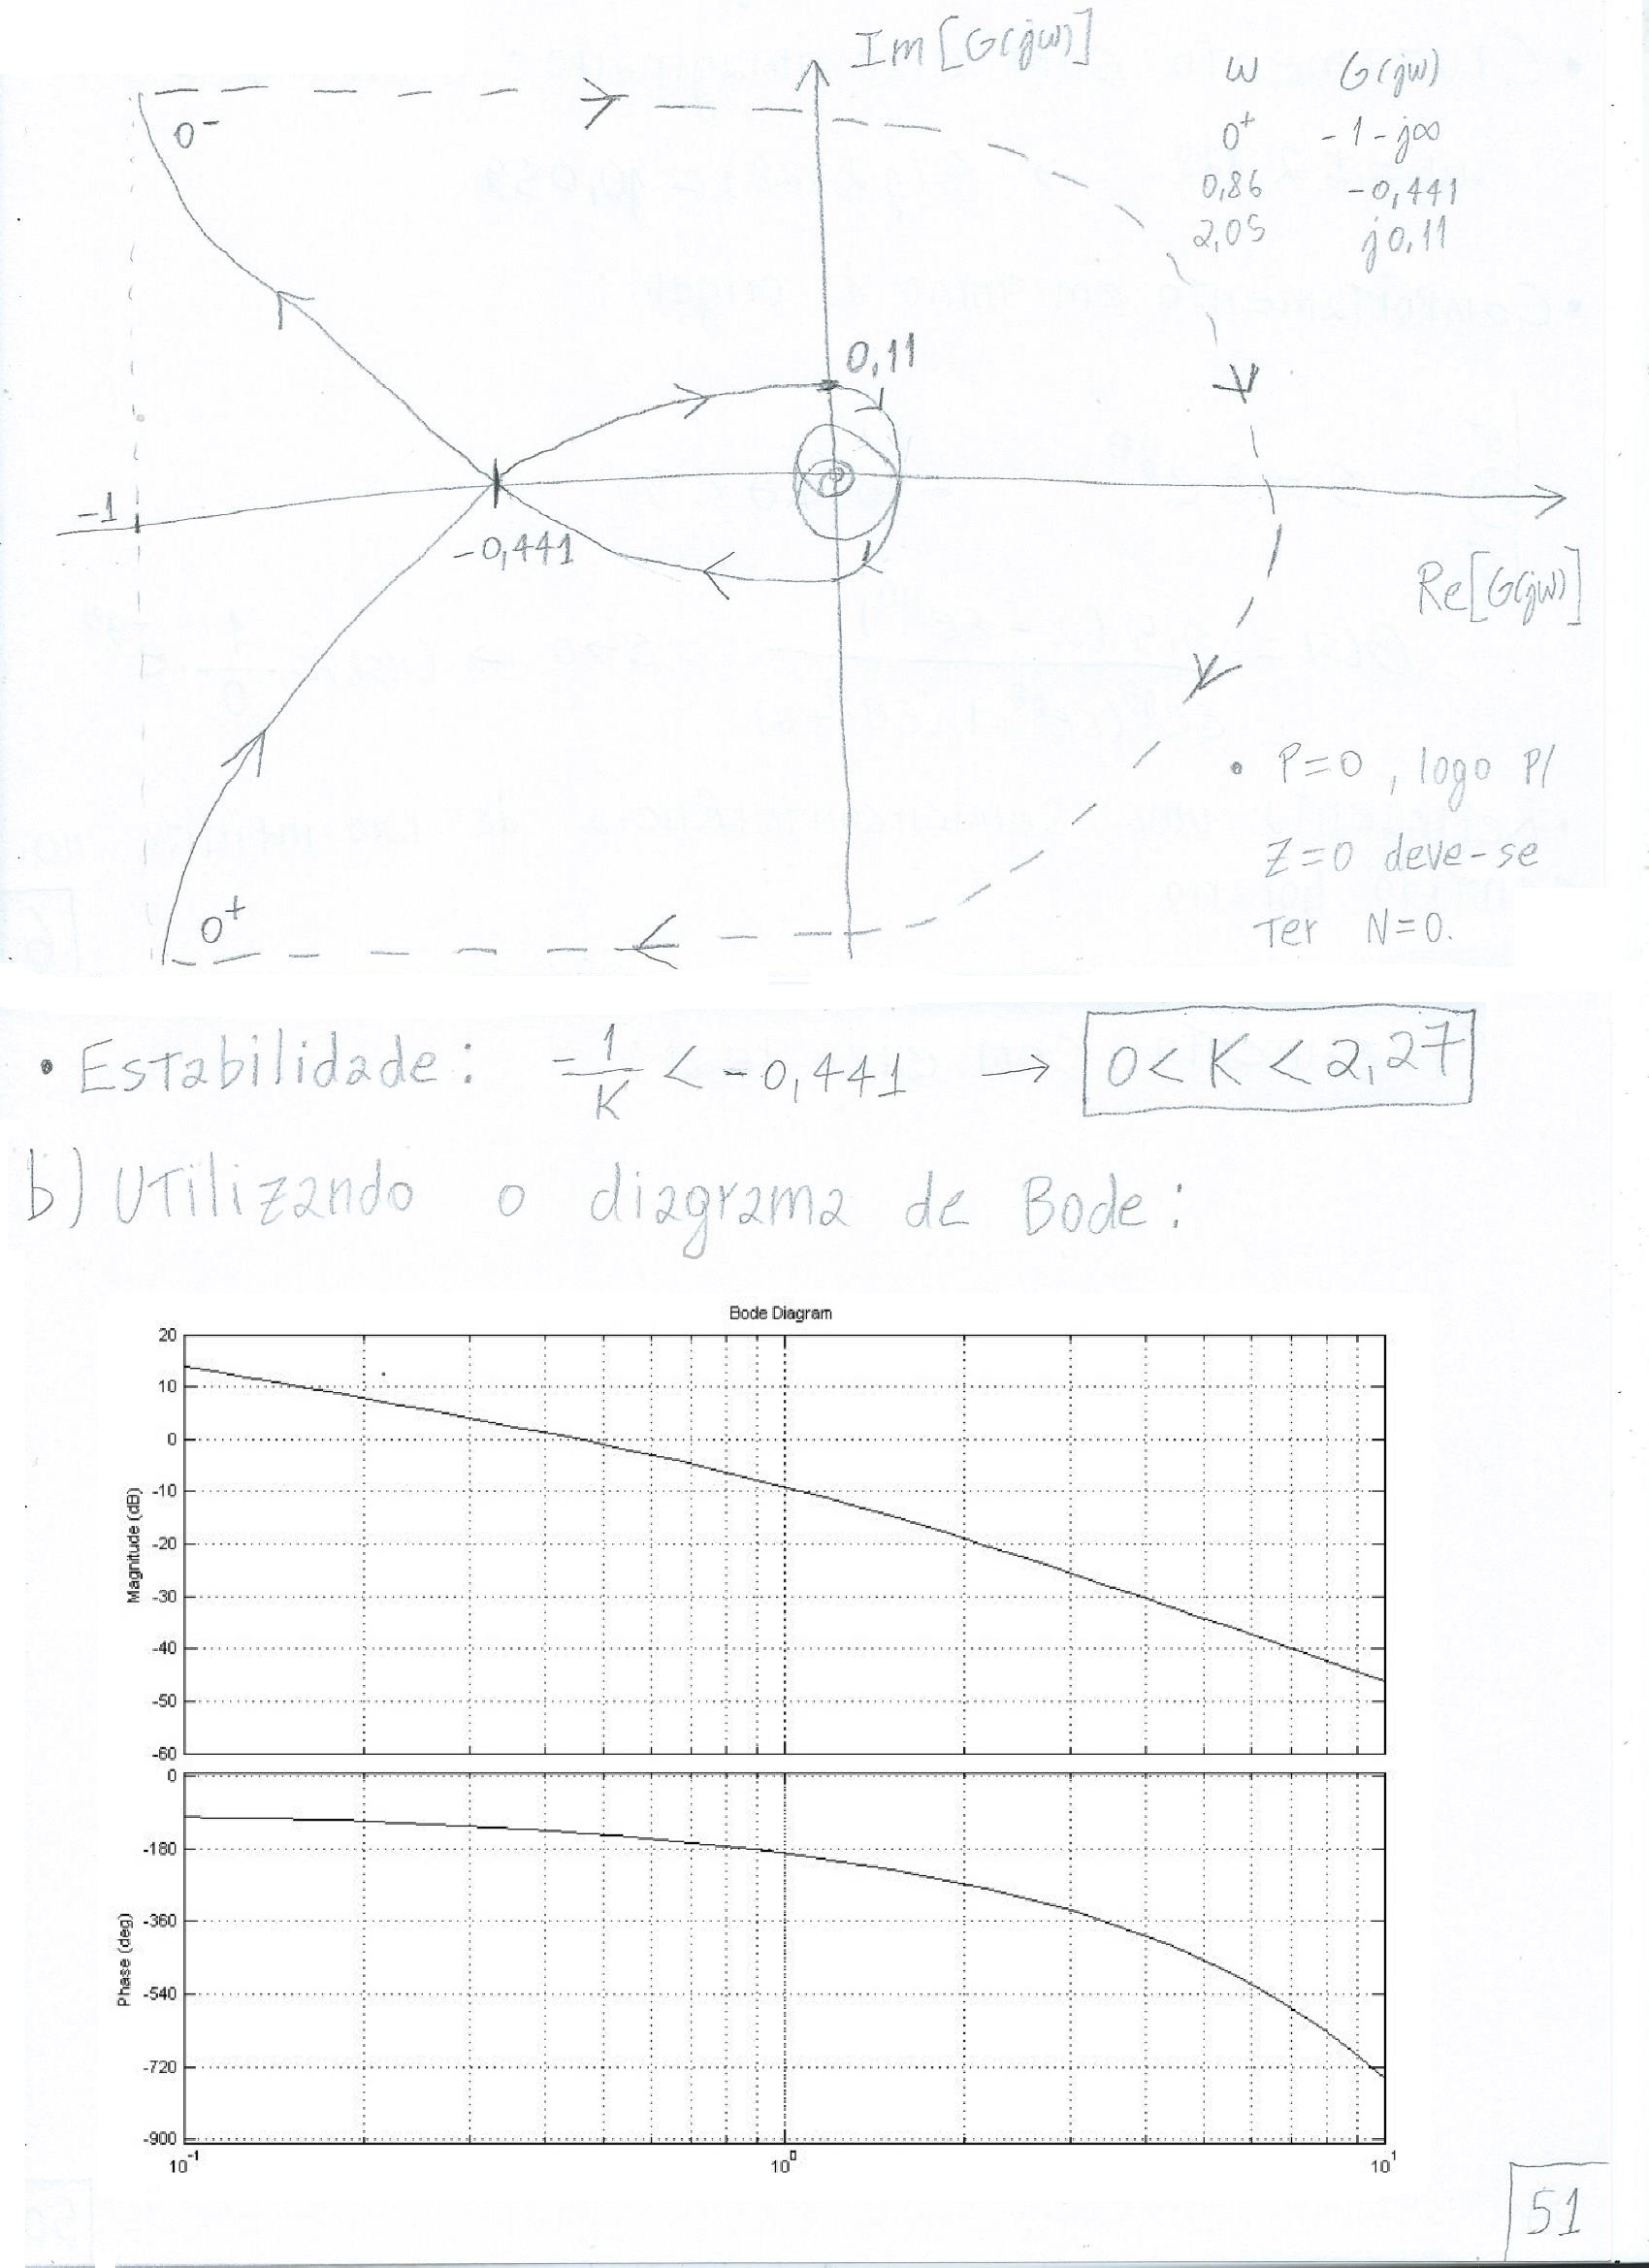 Im[G(jω)]
ω G(jω)
0⁺ -1-j∞
0,86 -0,441
2,05 j0,11
0⁻
0,11
-1
-0,441
Re[G(jω)]
• P=0, logo p/
Z=0 deve-se
Ter N=0.
0⁺
• Estabilidade: -1/K < -0,441 → 0<K<2,27
b) Utilizando o diagrama de Bode:
Bode Diagram
Magnitude (dB)
20
10
0
-10
-20
-30
-40
-50
-60
Phase (deg)
0
-180
-360
-540
-720
-900
10⁻¹ 10⁰ 10¹
51